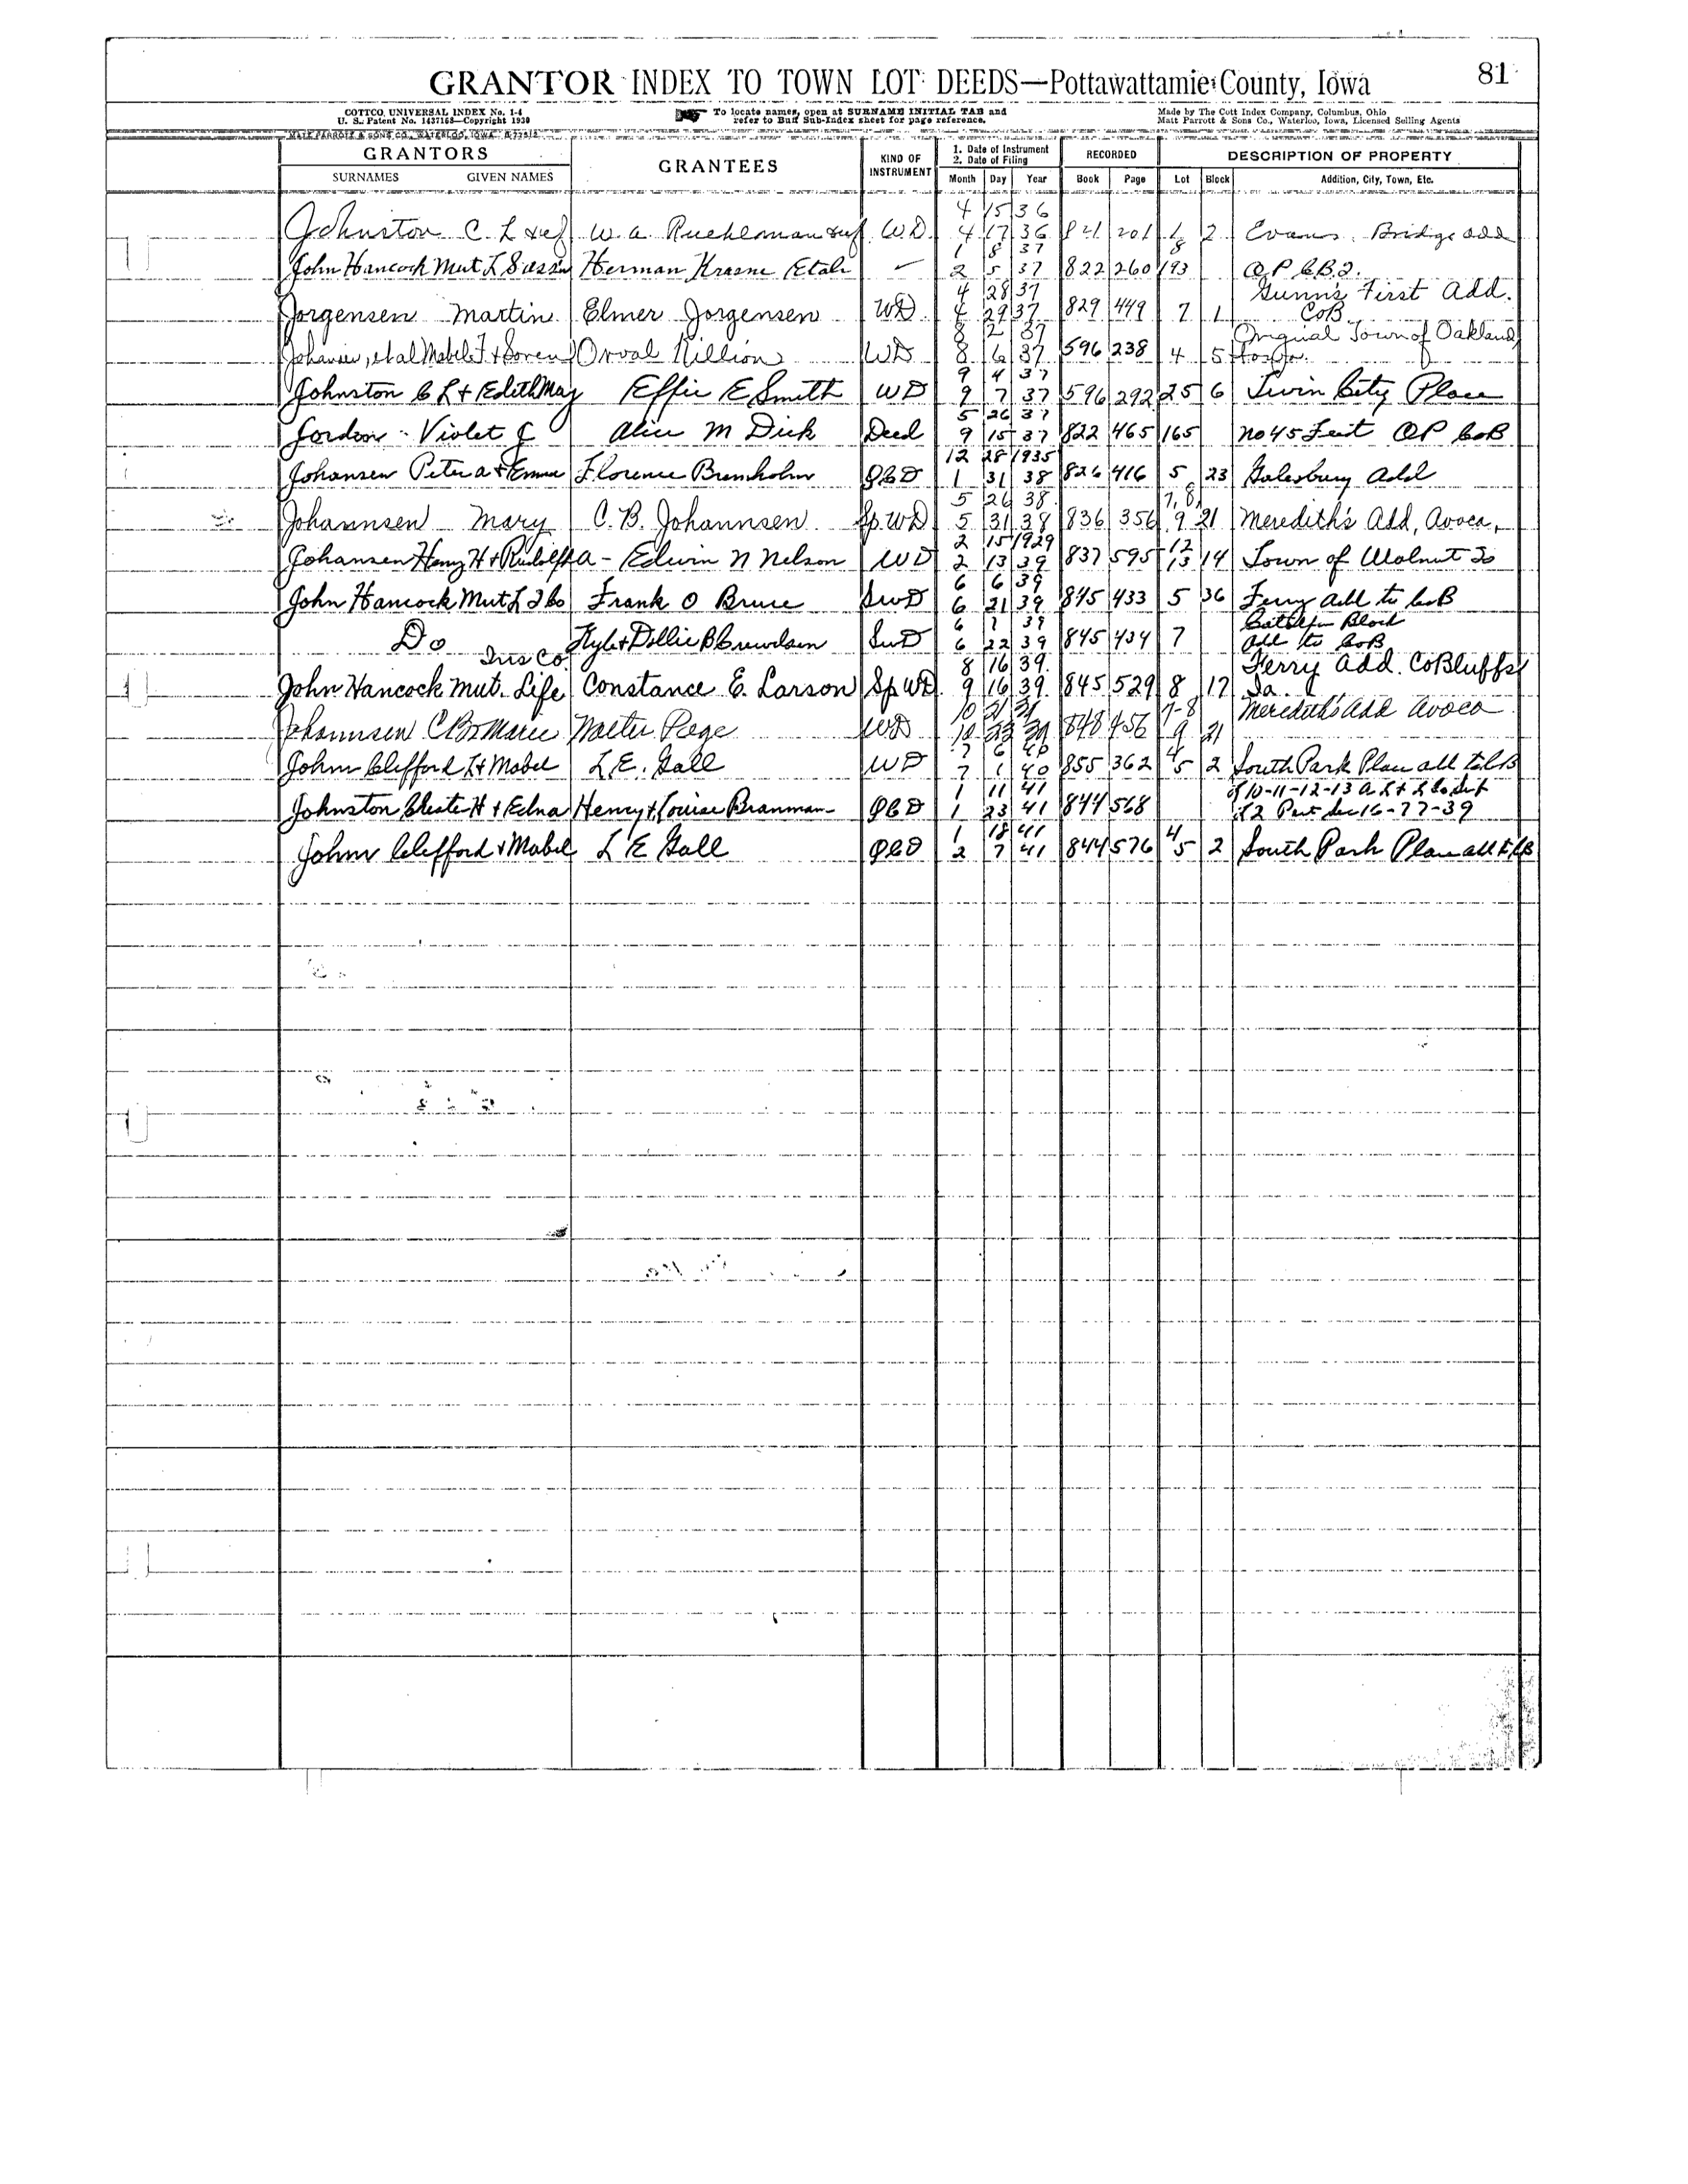 GRANTOR INDEX TO TOWN LOT DEEDS—Pottawattamie County, Iowa 81
COTTCO UNIVERSAL INDEX No. 1-4
U. S. Patent No. 1437168—Copyright 1920
To locate names, open at SURNAME INITIAL TAB and
refer to Buff Sub-Index sheet for page reference.
Made by The Cott Index Company, Columbus, Ohio
Matt Parrott & Sons Co., Waterloo, Iowa, Licensed Selling Agents
MATT PARROTT & SONS CO., WATERLOO, IOWA
GRANTORS GRANTEES KIND OF INSTRUMENT 1. Date of Instrument 2. Date of Filing RECORDED DESCRIPTION OF PROPERTY
SURNAMES GIVEN NAMES Month Day Year Book Page Lot Block Addition, City, Town, Etc.
4 15 36
Johnston C. L & W. A. WD. 4 17 36 841 201 1 2 Evans Bridge add
1 8 37 8
John Hancock Mut L Herman Krasne Etal 2 5 37 822 260 193 OP
4 28 37 Gunn's First Add.
Jorgensen Martin Elmer Jorgensen WD 4 29 37 829 449 7 1 CoB
8 2 37 Original Town of Oakland
et al Mabel F + Soren Orval Killion WD 8 6 37 596 238 4 5
9 4 37
Johnston C L + Edith May Effie E Smith WD 9 7 37 596 292 25 6 Twin City Place
5 26 37
Jordon Violet J Alice M Dick Deed 9 15 37 822 465 165 no 45 Feet OP CoB
12 28 1935
Johansen Peter A + Emma Florence QCD 1 31 38 826 416 5 23 Galesburg Add
5 26 38 7, 8,
Johannsen Mary C. B. Johannsen Sp. WD 5 31 38 836 356 9 21 Meredith's Add, Avoca,
2 15 1929 12
Johansen Henry H + Edwin N Nelson WD 2 13 39 837 595 13 14 Town of Walnut Ia
6 6 39
John Hancock Mut L I Co Frank O Bruce SwD 6 21 39 845 433 5 36 Ferry add to CoB
6 7 39
Do + Dollie B SwD 6 22 39 845 434 7 add to CoB
Ins Co. 8 16 39. Ferry Add. CoBluffs
John Hancock Mut. Life Constance E. Larson Sp WD. 9 16 39. 845 529 8 17 Ia.
10 21 7-8 Meredith's Add Avoca
Johannsen C B + Marie Walter Page WD 10 23 39 848 456 9 21
7 6 40 4
John Clifford L + Mabel L. E. Gall WD 7 1 40 855 362 5 2 South Park Place add to CB
1 11 41 of 10-11-12-13
Johnston Chester H + Edna Henry + Louise Branman QCD 1 23 41 844 568 of 2 Part Sec 16-77-39
1 18 41 4
John Clifford + Mabel L E Gall QCD 2 7 41 844 576 5 2 South Park Place add to CB